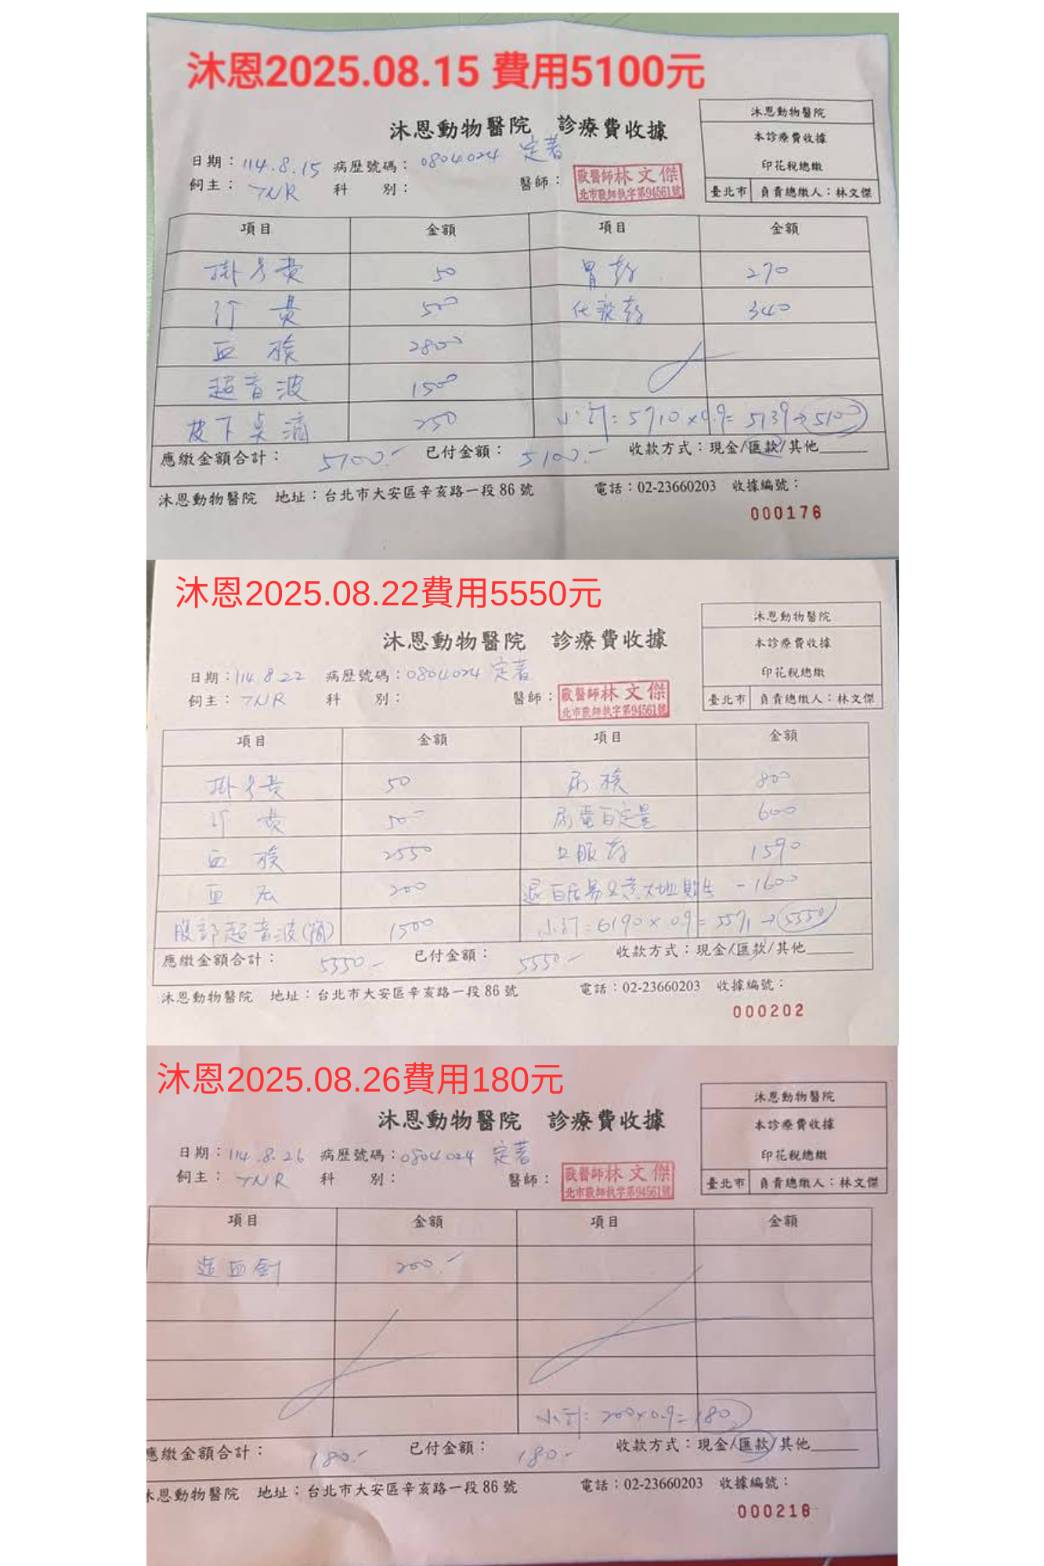 沐恩2025.08.15 費用5100元
沐恩動物醫院 診療費收據
沐恩動物醫院
本診療費收據
印花稅總繳
臺北市 負責總繳人：林文傑
日期：114.8.15 病歷號碼：0804024 定著
飼主：TNR 科 別： 醫師：獸醫師林文傑
北市獸師執字第94561號
項目 金額 項目 金額
掛号費 50 胃藥 270
診費 500 化痰藥 340
血檢 2800
超音波 1500
皮下点滴 250 小計=5710×0.9=5139→5100
應繳金額合計：5100.- 已付金額：5100.- 收款方式：現金/匯款/其他
沐恩動物醫院 地址：台北市大安區辛亥路一段86號 電話：02-23660203 收據編號：
000176
沐恩2025.08.22費用5550元
沐恩動物醫院 診療費收據
沐恩動物醫院
本診療費收據
印花稅總繳
臺北市 負責總繳人：林文傑
日期：114.8.22 病歷號碼：0804024 定著
飼主：TNR 科 別： 醫師：獸醫師林文傑
北市獸師執字第94561號
項目 金額 項目 金額
掛号費 50 尿檢 800
診費 500 尿蛋白定量 600
血檢 2550 口服藥 1590
血压 200 -1600
腹部超音波(簡) 1500 小計=6190×0.9=5571→5550
應繳金額合計：5550.- 已付金額：5550.- 收款方式：現金/匯款/其他
沐恩動物醫院 地址：台北市大安區辛亥路一段86號 電話：02-23660203 收據編號：
000202
沐恩2025.08.26費用180元
沐恩動物醫院 診療費收據
沐恩動物醫院
本診療費收據
印花稅總繳
臺北市 負責總繳人：林文傑
日期：114.8.26 病歷號碼：0804024 定著
飼主：TNR 科 別： 醫師：獸醫師林文傑
北市獸師執字第94561號
項目 金額 項目 金額
造血針 200.-
小計=200×0.9=180
應繳金額合計：180.- 已付金額：180.- 收款方式：現金/匯款/其他
沐恩動物醫院 地址：台北市大安區辛亥路一段86號 電話：02-23660203 收據編號：
000218